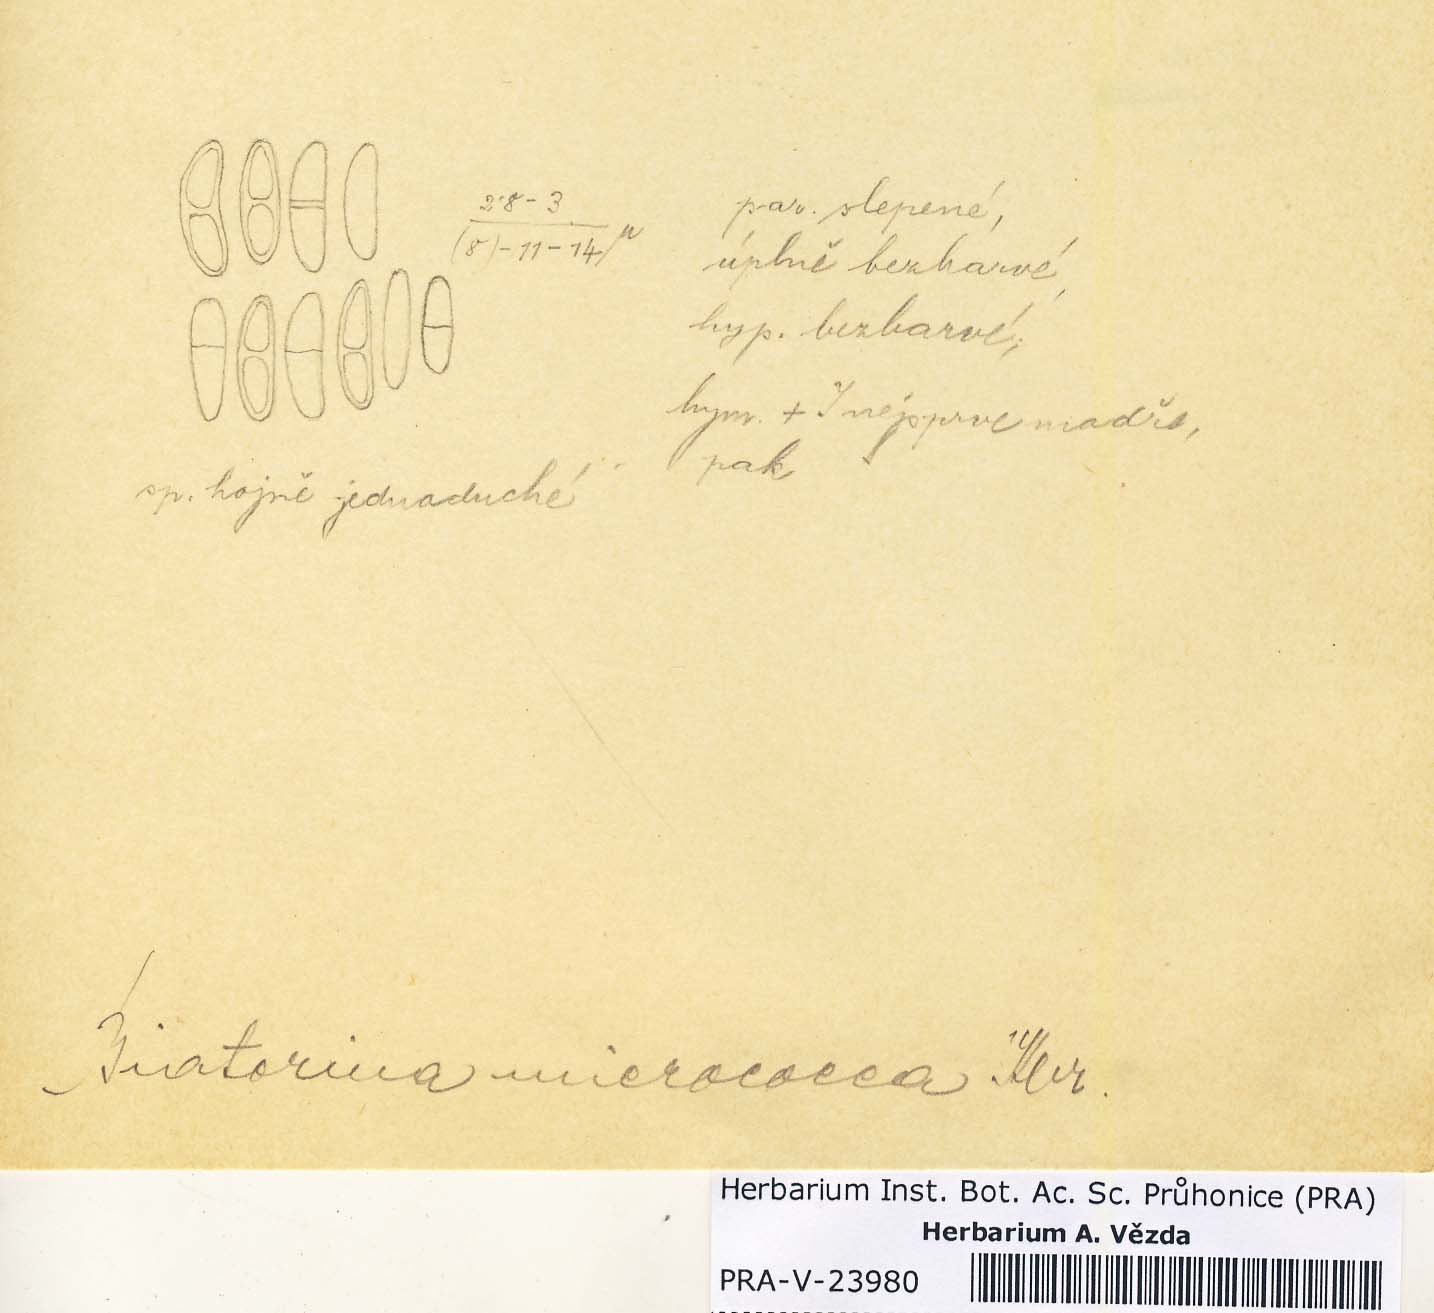 2·8 - 3
(8) - 11 - 14 μ
par. slepené,
úplně bezbarvé,
hyp. bezbarvé,
hym. + J nejprve modře,
pak
sp. hojně jednoduché
Biatorina micrococca Kbr.
Herbarium Inst. Bot. Ac. Sc. Průhonice (PRA)
Herbarium A. Vězda
PRA-V-23980